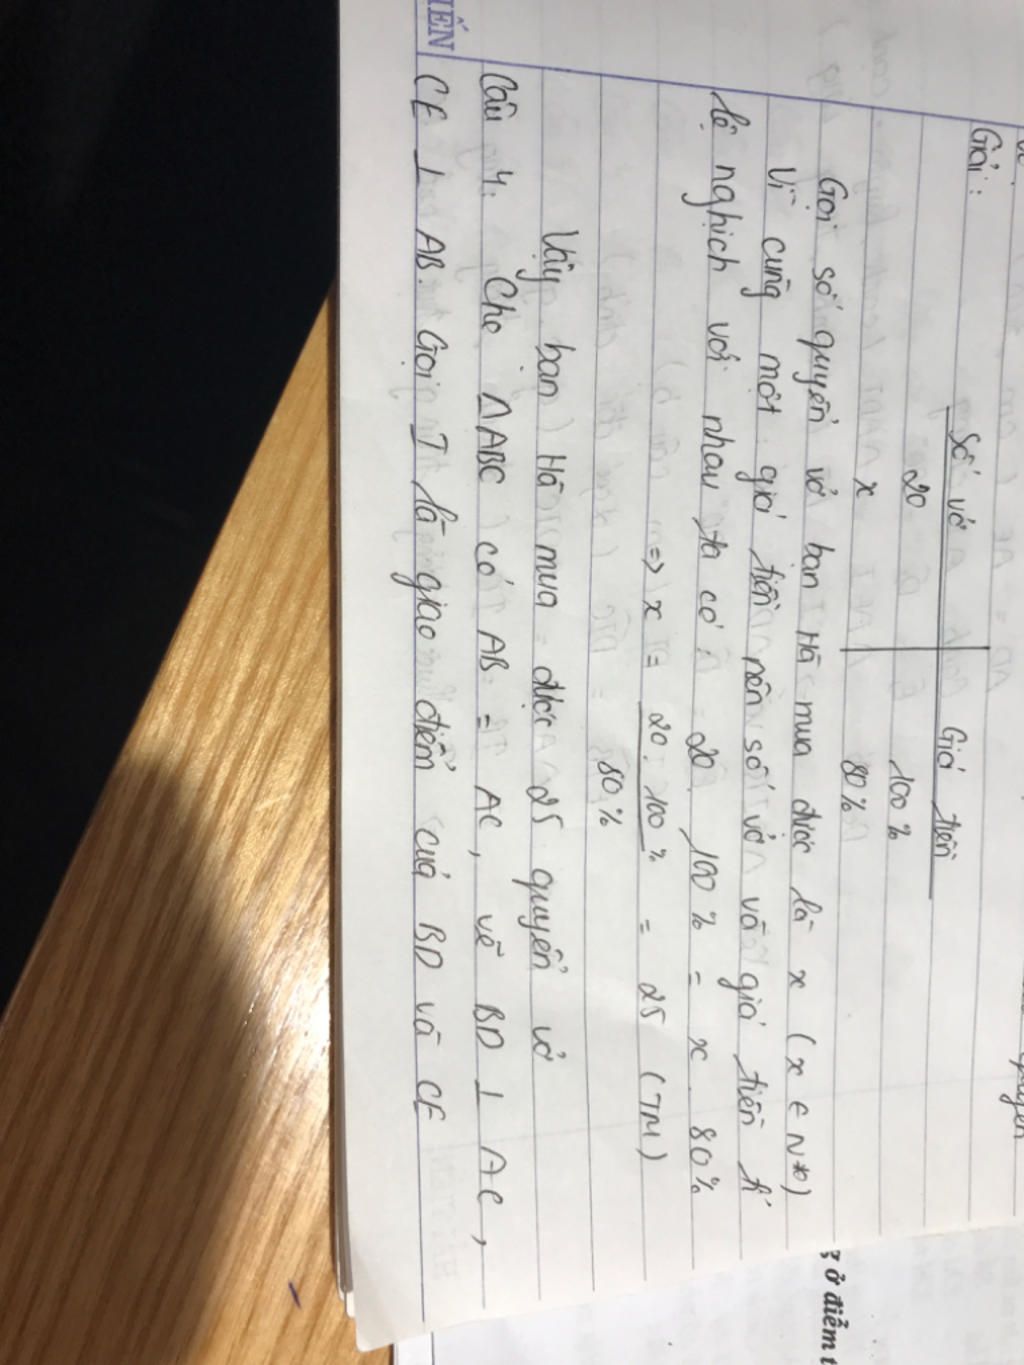 Giải:
Số vở Giá tiền
20 100%
x 80%
Gọi số quyển vở bạn Hà mua được là x (x ∈ N*)
Vì cùng một giá tiền nên số vở và giá tiền tỉ
lệ nghịch với nhau ta có 20. 100% = x. 80%
=> x = 20. 100% / 80% = 25 (TM)
Vậy bạn Hà mua được 25 quyển vở
Câu 4: Cho △ABC có AB = AC, vẽ BD ⊥ AC,
CE ⊥ AB. Gọi I là giao điểm của BD và CE
IẾN
g ở điểm